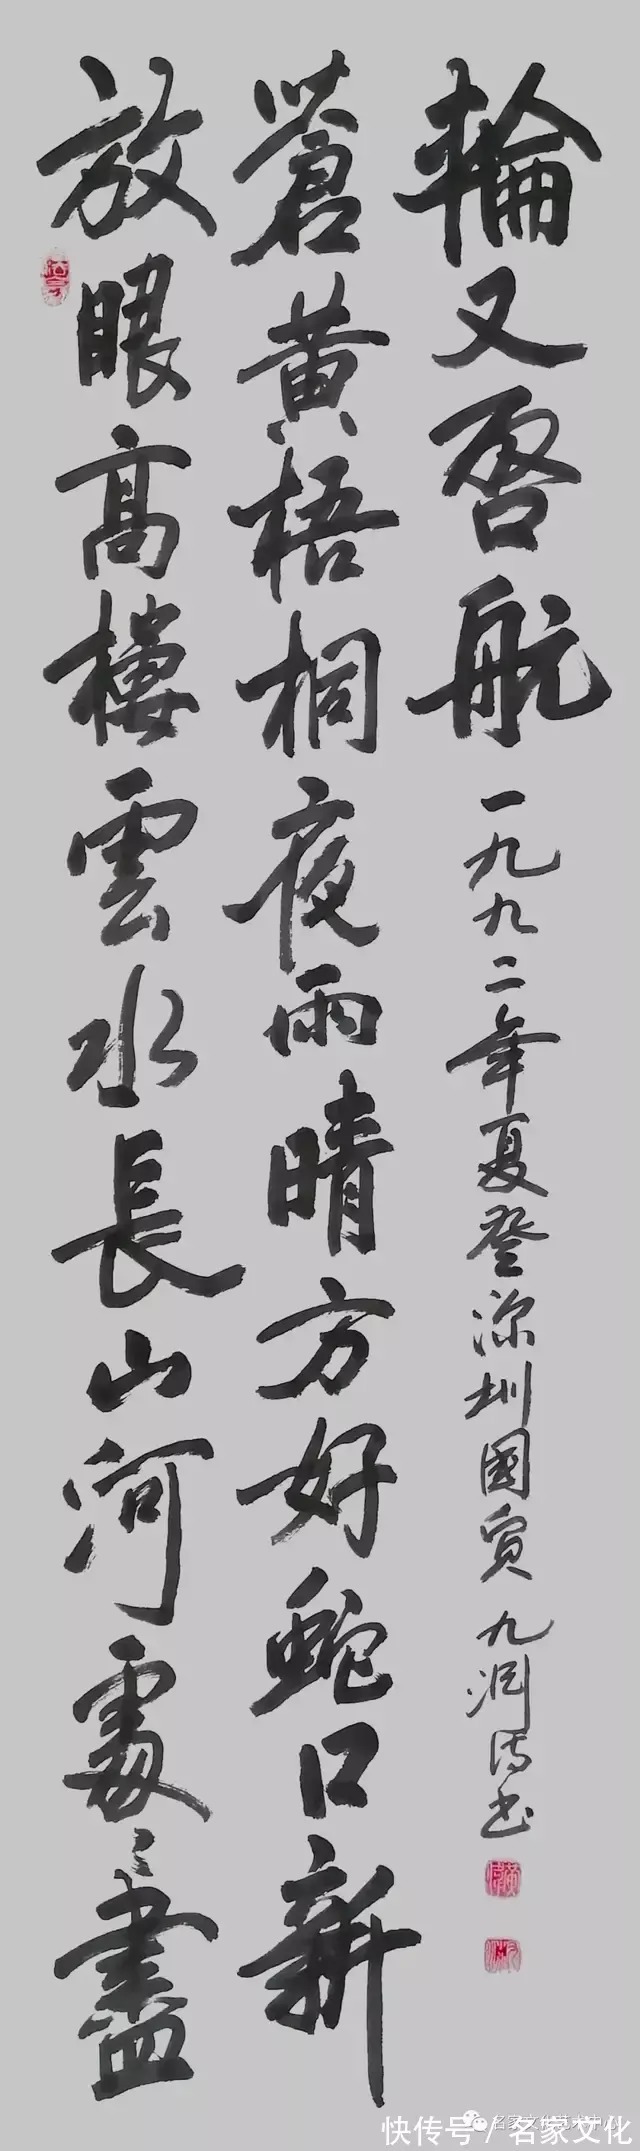 放眼高樓雲水長山河處々盡
蒼黃梧桐夜雨晴方好蛇口新
輪又啓航
一九九二年夏登深圳國貿 九
名家文化艺术中心
快传号 / 名家文化